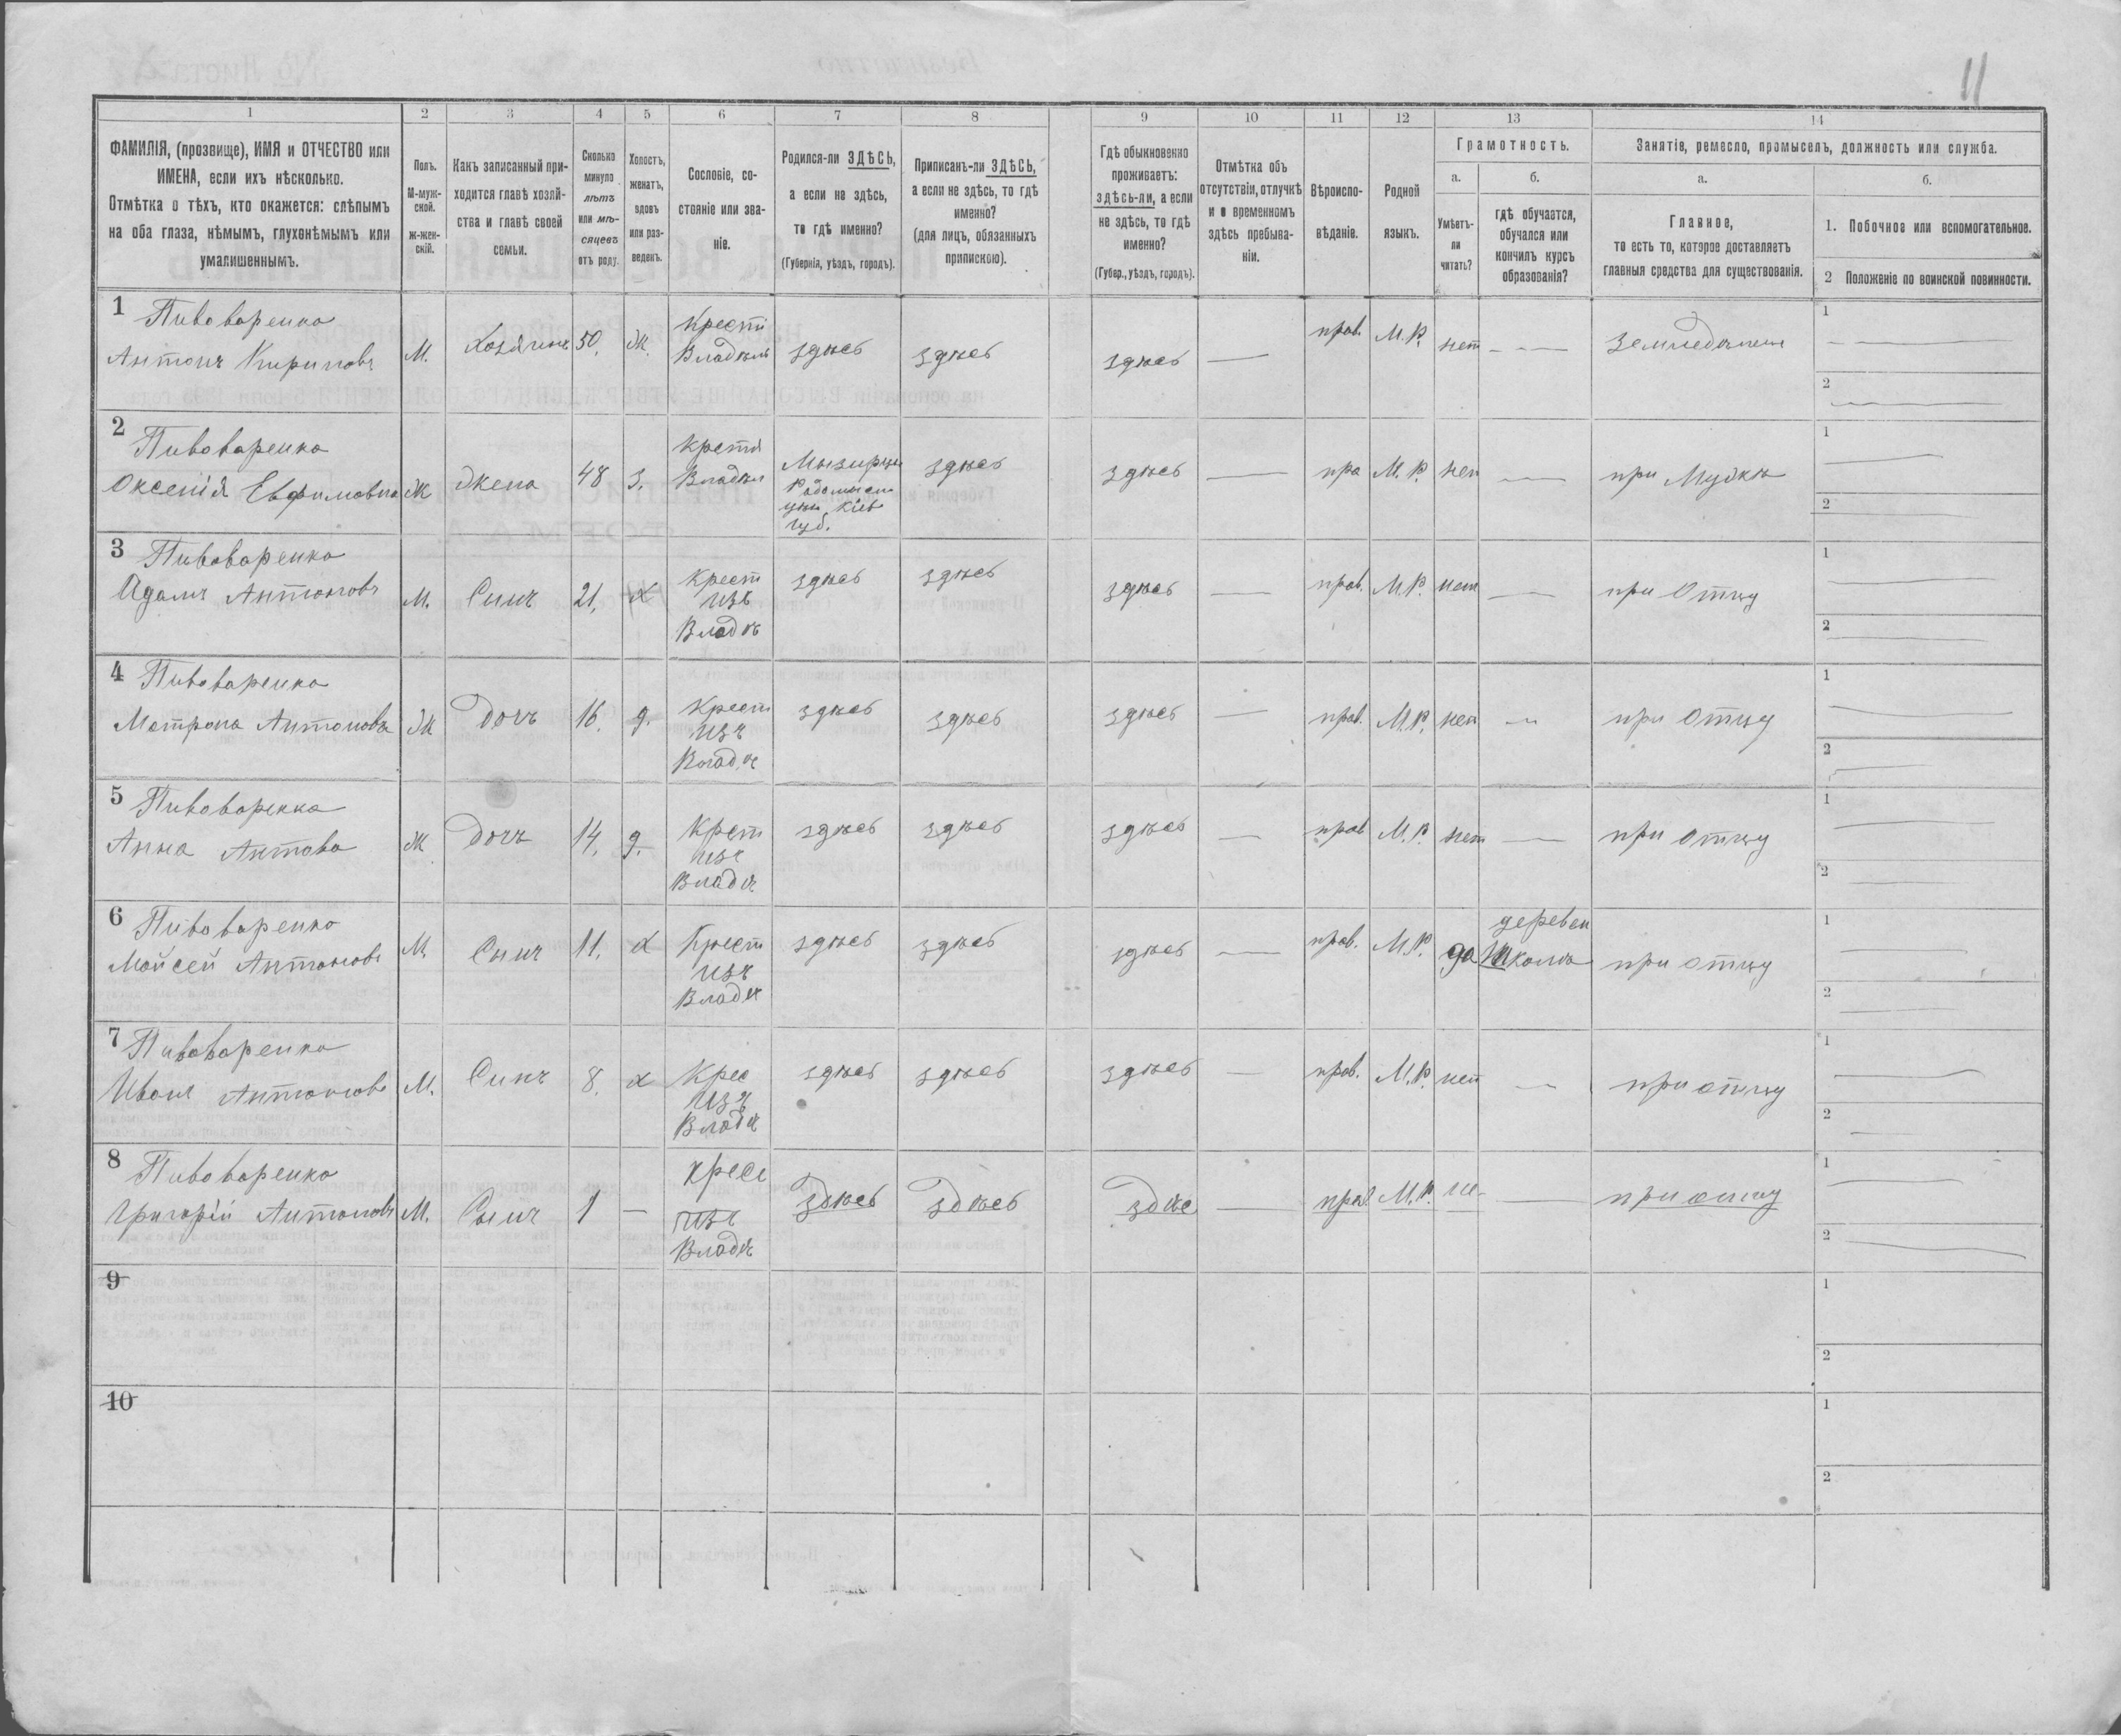 11
1 2 3 4 5 6 7 8 9 10 11 12 13 14
ФАМИЛІЯ, (прозвище), ИМЯ и ОТЧЕСТВО или
ИМЕНА, если ихъ нѣсколько.
Отмѣтка о тѣхъ, кто окажется: слѣпымъ
на оба глаза, нѣмымъ, глухонѣмымъ или
умалишеннымъ.
Полъ.
М-муж-
ской.
ж-жен-
скій.
Какъ записанный при-
ходится главѣ хозяй-
ства и главѣ своей
семьи.
Сколько
минуло
лѣтъ
или мѣ-
сяцевъ
отъ роду.
Холостъ,
женатъ,
вдовъ
или раз-
веденъ.
Сословіе, со-
стояніе или зва-
ніе.
Родился-ли ЗДѢСЬ,
а если не здѣсь,
то гдѣ именно?
(Губернія, уѣздъ, городъ).
Приписанъ-ли ЗДѢСЬ,
а если не здѣсь, то гдѣ
именно?
(для лицъ, обязанныхъ
припискою).
Гдѣ обыкновенно
проживаетъ:
здѣсь-ли, а если
не здѣсь, то гдѣ
именно?
(Губер., уѣздъ, городъ).
Отмѣтка объ
отсутствіи, отлучкѣ
и о временномъ
здѣсь пребыва-
ніи.
Вѣроиспо-
вѣданіе.
Родной
языкъ.
Грамотность.
а.
Умѣетъ-
ли
читать?
б.
гдѣ обучается,
обучался или
кончилъ курсъ
образованія?
Занятіе, ремесло, промыселъ, должность или служба.
а.
Главное,
то есть то, которое доставляетъ
главныя средства для существованія.
б.
1. Побочное или вспомогательное.
2 Положеніе по воинской повинности.
1 Пивоваренко
Антонъ Кириловъ М. Хозяинъ 50. Ж. Крестя Владѣль здѣсь здѣсь здѣсь — прав. М.Р. нет — земледѣлеш
1
2
2 Пивоваренко
Оксенія Евфимовна Ж жена 48 з. Крестя Владѣл Радомысл уѣз Кіев губ. здѣсь здѣсь — пра М.Р. нет — при Мужѣ
1
2
3 Пивоваренко
Адамъ Антоновъ М. Синъ 21. х Крест изъ Владѣ здѣсь здѣсь здѣсь — прав. М.Р. нет — при Отцу
1
2
4 Пивоваренко
Матрона Антонова Ж Дочъ 16. д. Крест изъ Владѣ здѣсь здѣсь здѣсь — прав. М.Р. нет — при Отцу
1
2
5 Пивоваренка
Анна Антова Ж Дочъ 14. д. Крест изъ Владѣ здѣсь здѣсь здѣсь — прав М.Р. нет — при отцу
1
2
6 Пивоваренко
Мойсей Антоновъ М. Синъ 11. х Крест изъ Владѣ здѣсь здѣсь здѣсь — прав. М.Р. да деревен Школа при отцу
1
2
7 Пивоваренко
Иванъ Антонов М. Синъ 8. х Крес изъ Владѣ здѣсь здѣсь здѣсь — прав. М.Р. нет — при отцу
1
2
8 Пивоваренко
Григорій Антоновъ М. Сынъ 1 — кресь изъ Владѣ здѣсь здѣсь здѣс — прав. М.Р. не — при отцу
1
2
9
1
2
10
1
2